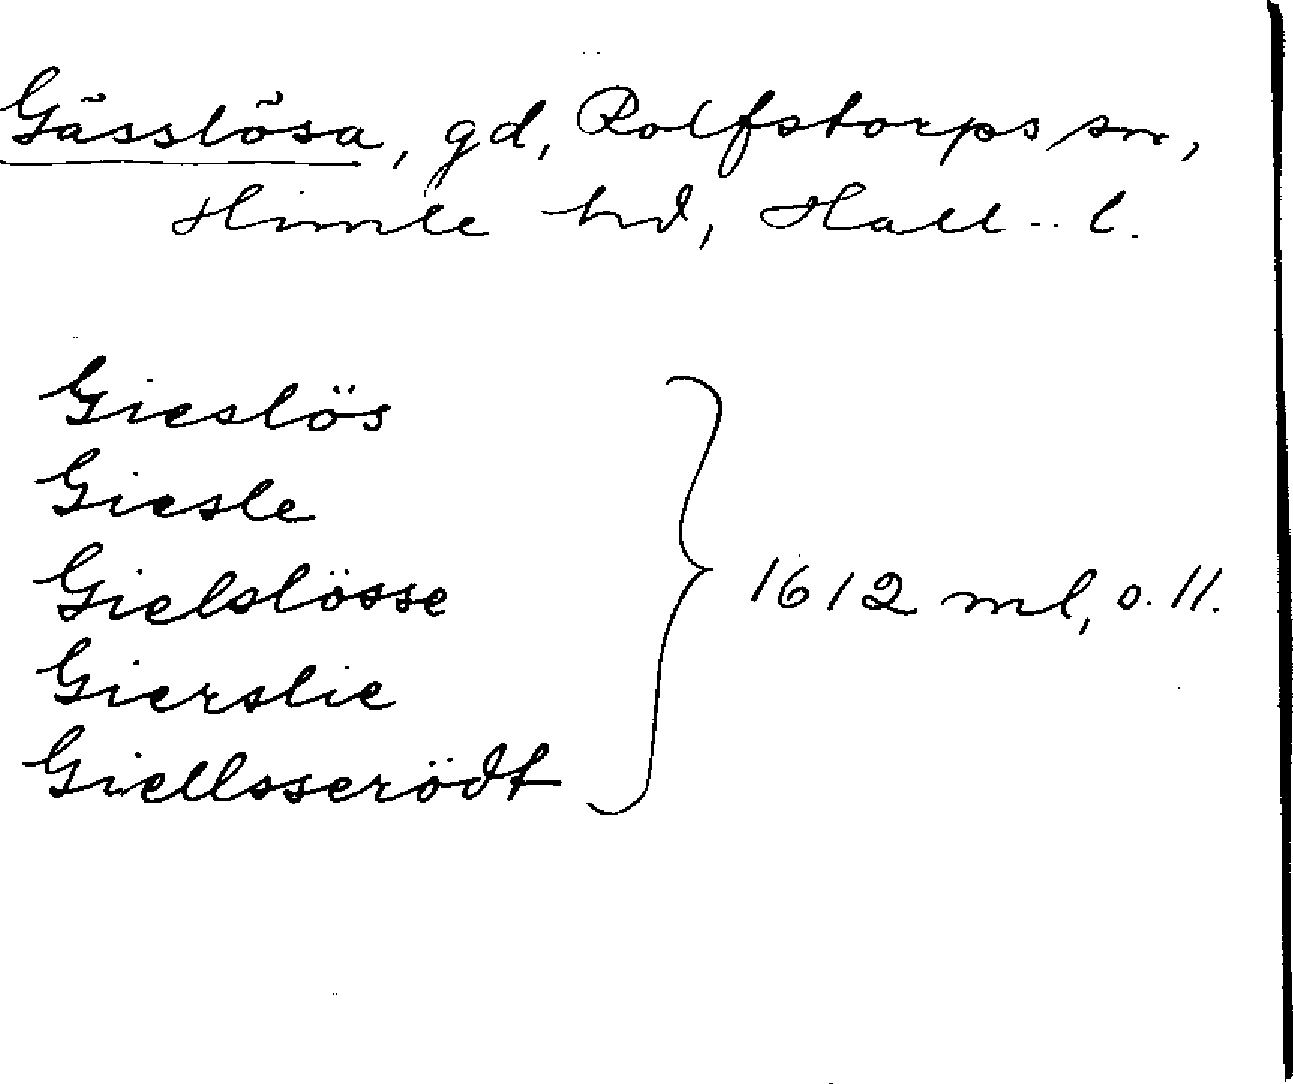 Gässlösa, gd, Rolfstorps sn,
Himle hd, Hall.. l.
Gieslös
Giesle
Gielslösse
Gierslie
Giellsserödt
} 1612 ml, s. 11.